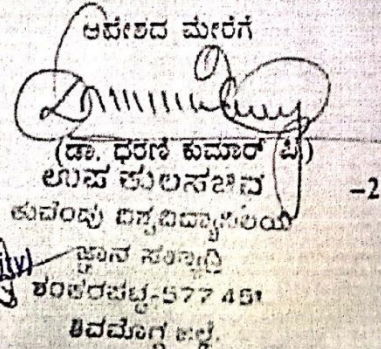 ಆದೇಶದ ಮೇರೆಗೆ
(ಡಾ. ಧರಣಿ ಕುಮಾರ್ ಪಿ.)
ಉಪ ಕುಲಸಚಿವ
-2
ಕುವೆಂಪು ವಿಶ್ವವಿದ್ಯಾನಿಲಯ
ಜ್ಞಾನ ಸಹ್ಯಾದ್ರಿ
ಶಂಕರಘಟ್ಟ-577 451
ಶಿವಮೊಗ್ಗ ಜಿಲ್ಲೆ.